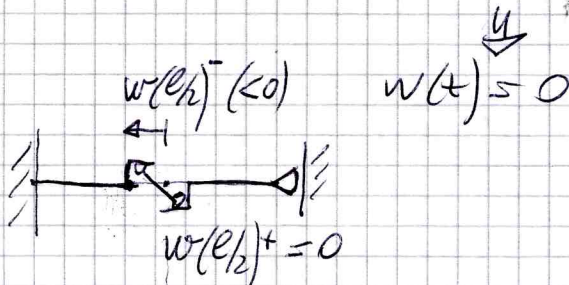 4
w(ℓ/2)⁻ (<0)
w(t) = 0
w(ℓ/2)⁺ = 0